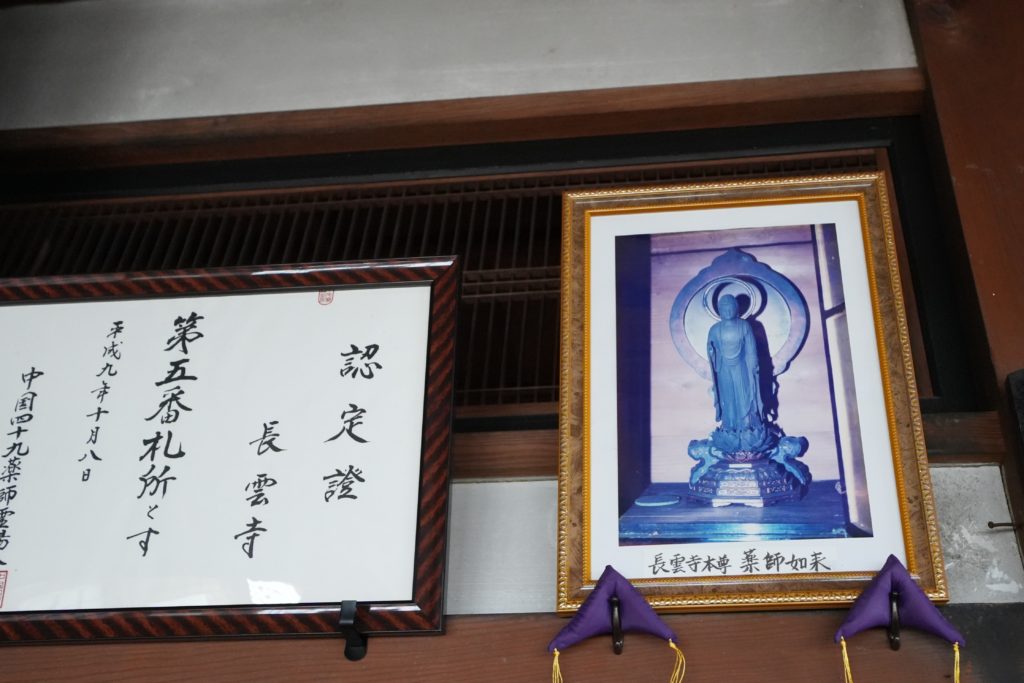 認定證
長雲寺
第五番札所とす
平成九年十月八日
中国四十九薬師霊場
長雲寺本尊 薬師如来